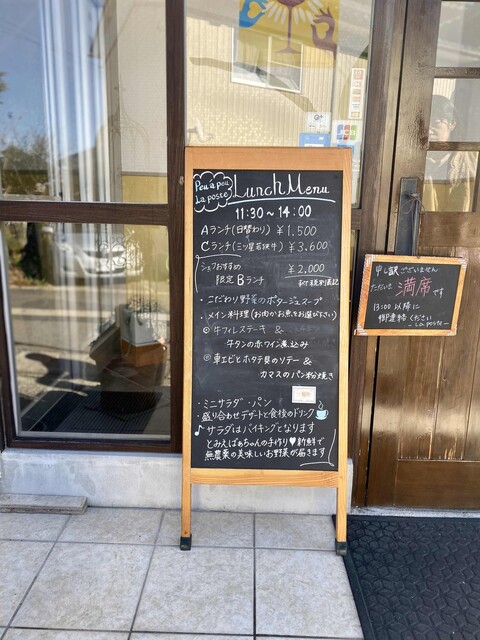 Peu à peu
La poste
Lunch Menu
11:30～14:00
Aランチ(日替わり) ¥1,500
Cランチ(三ツ星若狭牛) ¥3,600
シェフおすすめ
限定 Bランチ
¥2,000
・こだわり野菜のポタージュスープ
・メイン料理(お肉かお魚をお選び下さい)
牛フィレステーキ &
牛タンの赤ワイン煮込み
車エビとホタテ貝のソテー &
カマスのパン粉焼き
・ミニサラダ・パン
・盛り合わせデザートと食後のドリンク
♪ サラダはバイキングとなります
とみえばぁちゃんの手作り♥新鮮で
無農薬の美味しいお野菜が届きます
申し訳ございません
ただいま 満席 です
13:00 以降に
御連絡ください
- La poste -